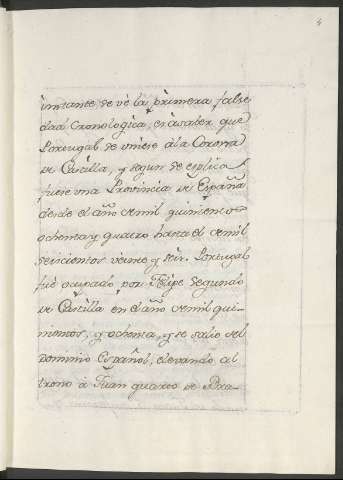 4
instante se vè la primera false
dad Cronologica, è ràsaber que
Portugal se uniese àla Corona
de Castilla, y segun se esplica
fuese una Provincia de España
desde el año demil quinientos
ochenta y quatro hasta el demil
seiscientos veinte y seis. Portugal
fuè ocupado por Felipe Segundo
de Castilla en el año demil qui-
nientos, y ochenta, y se salio del
Dominio Español, elevando al
trono à Juan quarto de Bra-